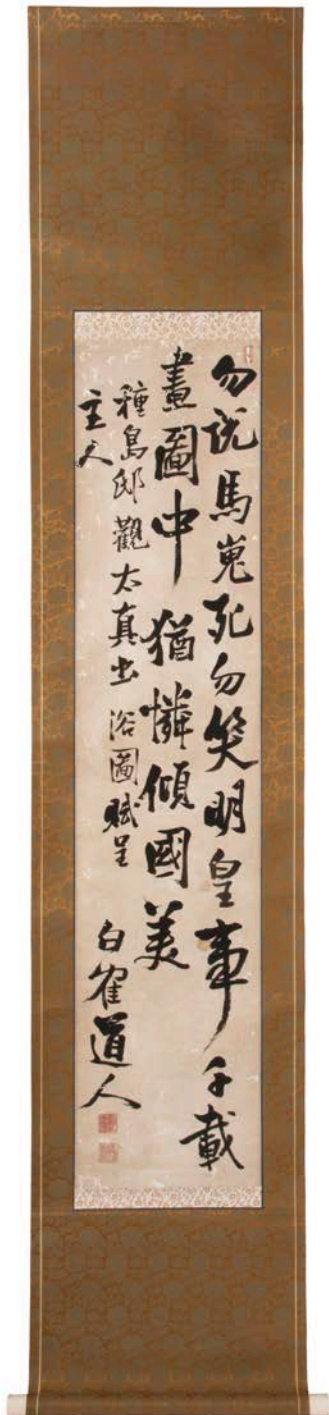 勿說馬嵬死勿笑明皇事千載
畫圖中猶憐傾國美
種島邸觀太真出浴圖賦呈
主人
白隺道人